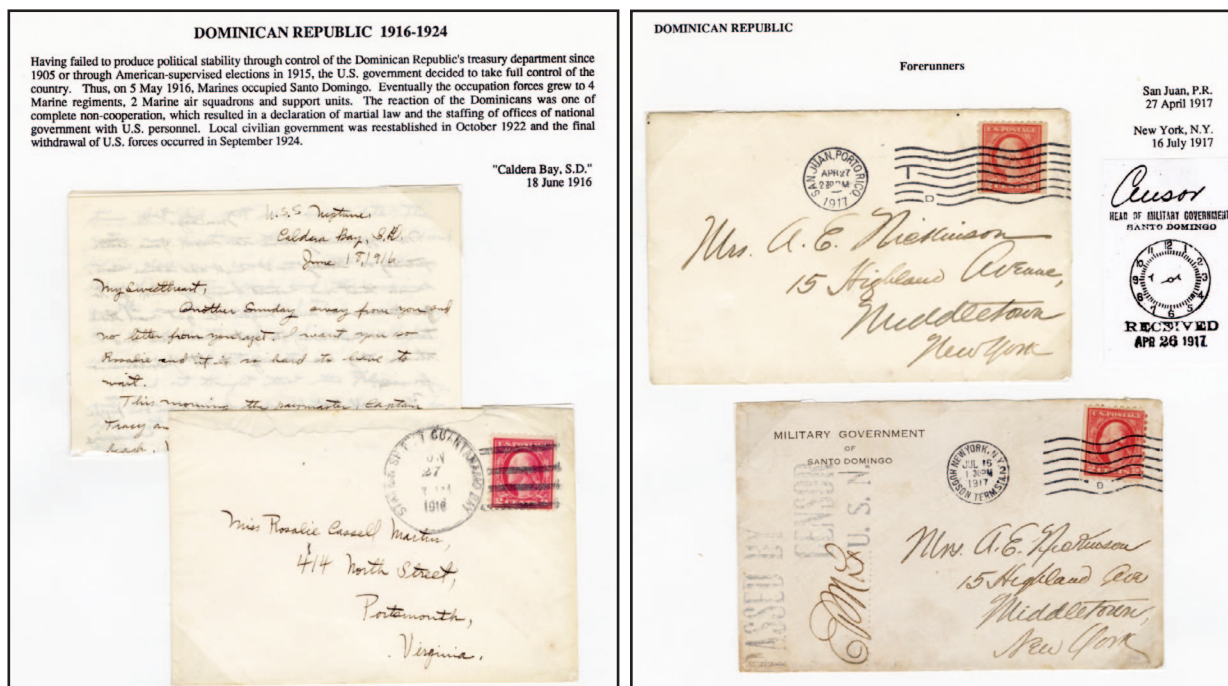 DOMINICAN REPUBLIC 1916-1924
Having failed to produce political stability through control of the Dominican Republic's treasury department since
1905 or through American-supervised elections in 1915, the U.S. government decided to take full control of the
country. Thus, on 5 May 1916, Marines occupied Santo Domingo. Eventually the occupation forces grew to 4
Marine regiments, 2 Marine air squadrons and support units. The reaction of the Dominicans was one of
complete non-cooperation, which resulted in a declaration of martial law and the staffing of offices of national
government with U.S. personnel. Local civilian government was reestablished in October 1922 and the final
withdrawal of U.S. forces occurred in September 1924.
"Caldera Bay, S.D."
18 June 1916
U.S.S. Neptune,
Caldera Bay, S.D.
June 18, 1916
My Sweetheart,
Another Sunday away from you and
no letter from you yet. I want you so
Rosalie and it is so hard to have to
wait.
This morning the paymaster, Captain
Tracy
GUANTANAMO BAY
27
1916
Miss Rosalie Cassell Martin,
414 North Street,
Portsmouth,
Virginia.
DOMINICAN REPUBLIC
Forerunners
San Juan, P.R.
27 April 1917
New York, N.Y.
16 July 1917
SAN JUAN, PORTO RICO.
APR 27
1917
U.S. POSTAGE
D
Mrs. A. E. Nickinson
15 Highland Avenue,
Middletown
New York
Censor
HEAD OF MILITARY GOVERNMENT
SANTO DOMINGO
12 1 2 3 4 5 6 7 8 9 10 11
RECEIVED
APR 26 1917
MILITARY GOVERNMENT
OF
SANTO DOMINGO
PASSED BY
CENSOR
U. S. N.
NEW YORK, N.Y.
HUDSON TERM. STA.
JUL 16
1 30PM
1917
U.S. POSTAGE
D
Mrs. A. E. Nickinson
15 Highland Ave
Middletown,
New York